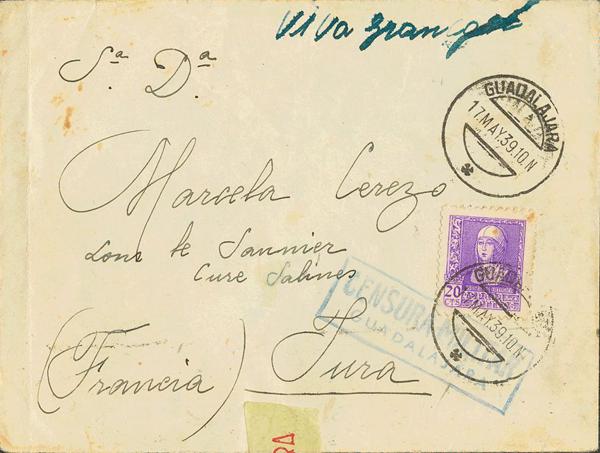 Viva
Sª Dª
GUADALAJARA
17.MAY.39.10.N
Marcela Cerezo
Lons le Saunier
Cure Salines
20
CTS
CENSURA MILITAR
GUADALAJARA
GUADALAJARA
17.MAY.39.10.N
(Francia) Jura